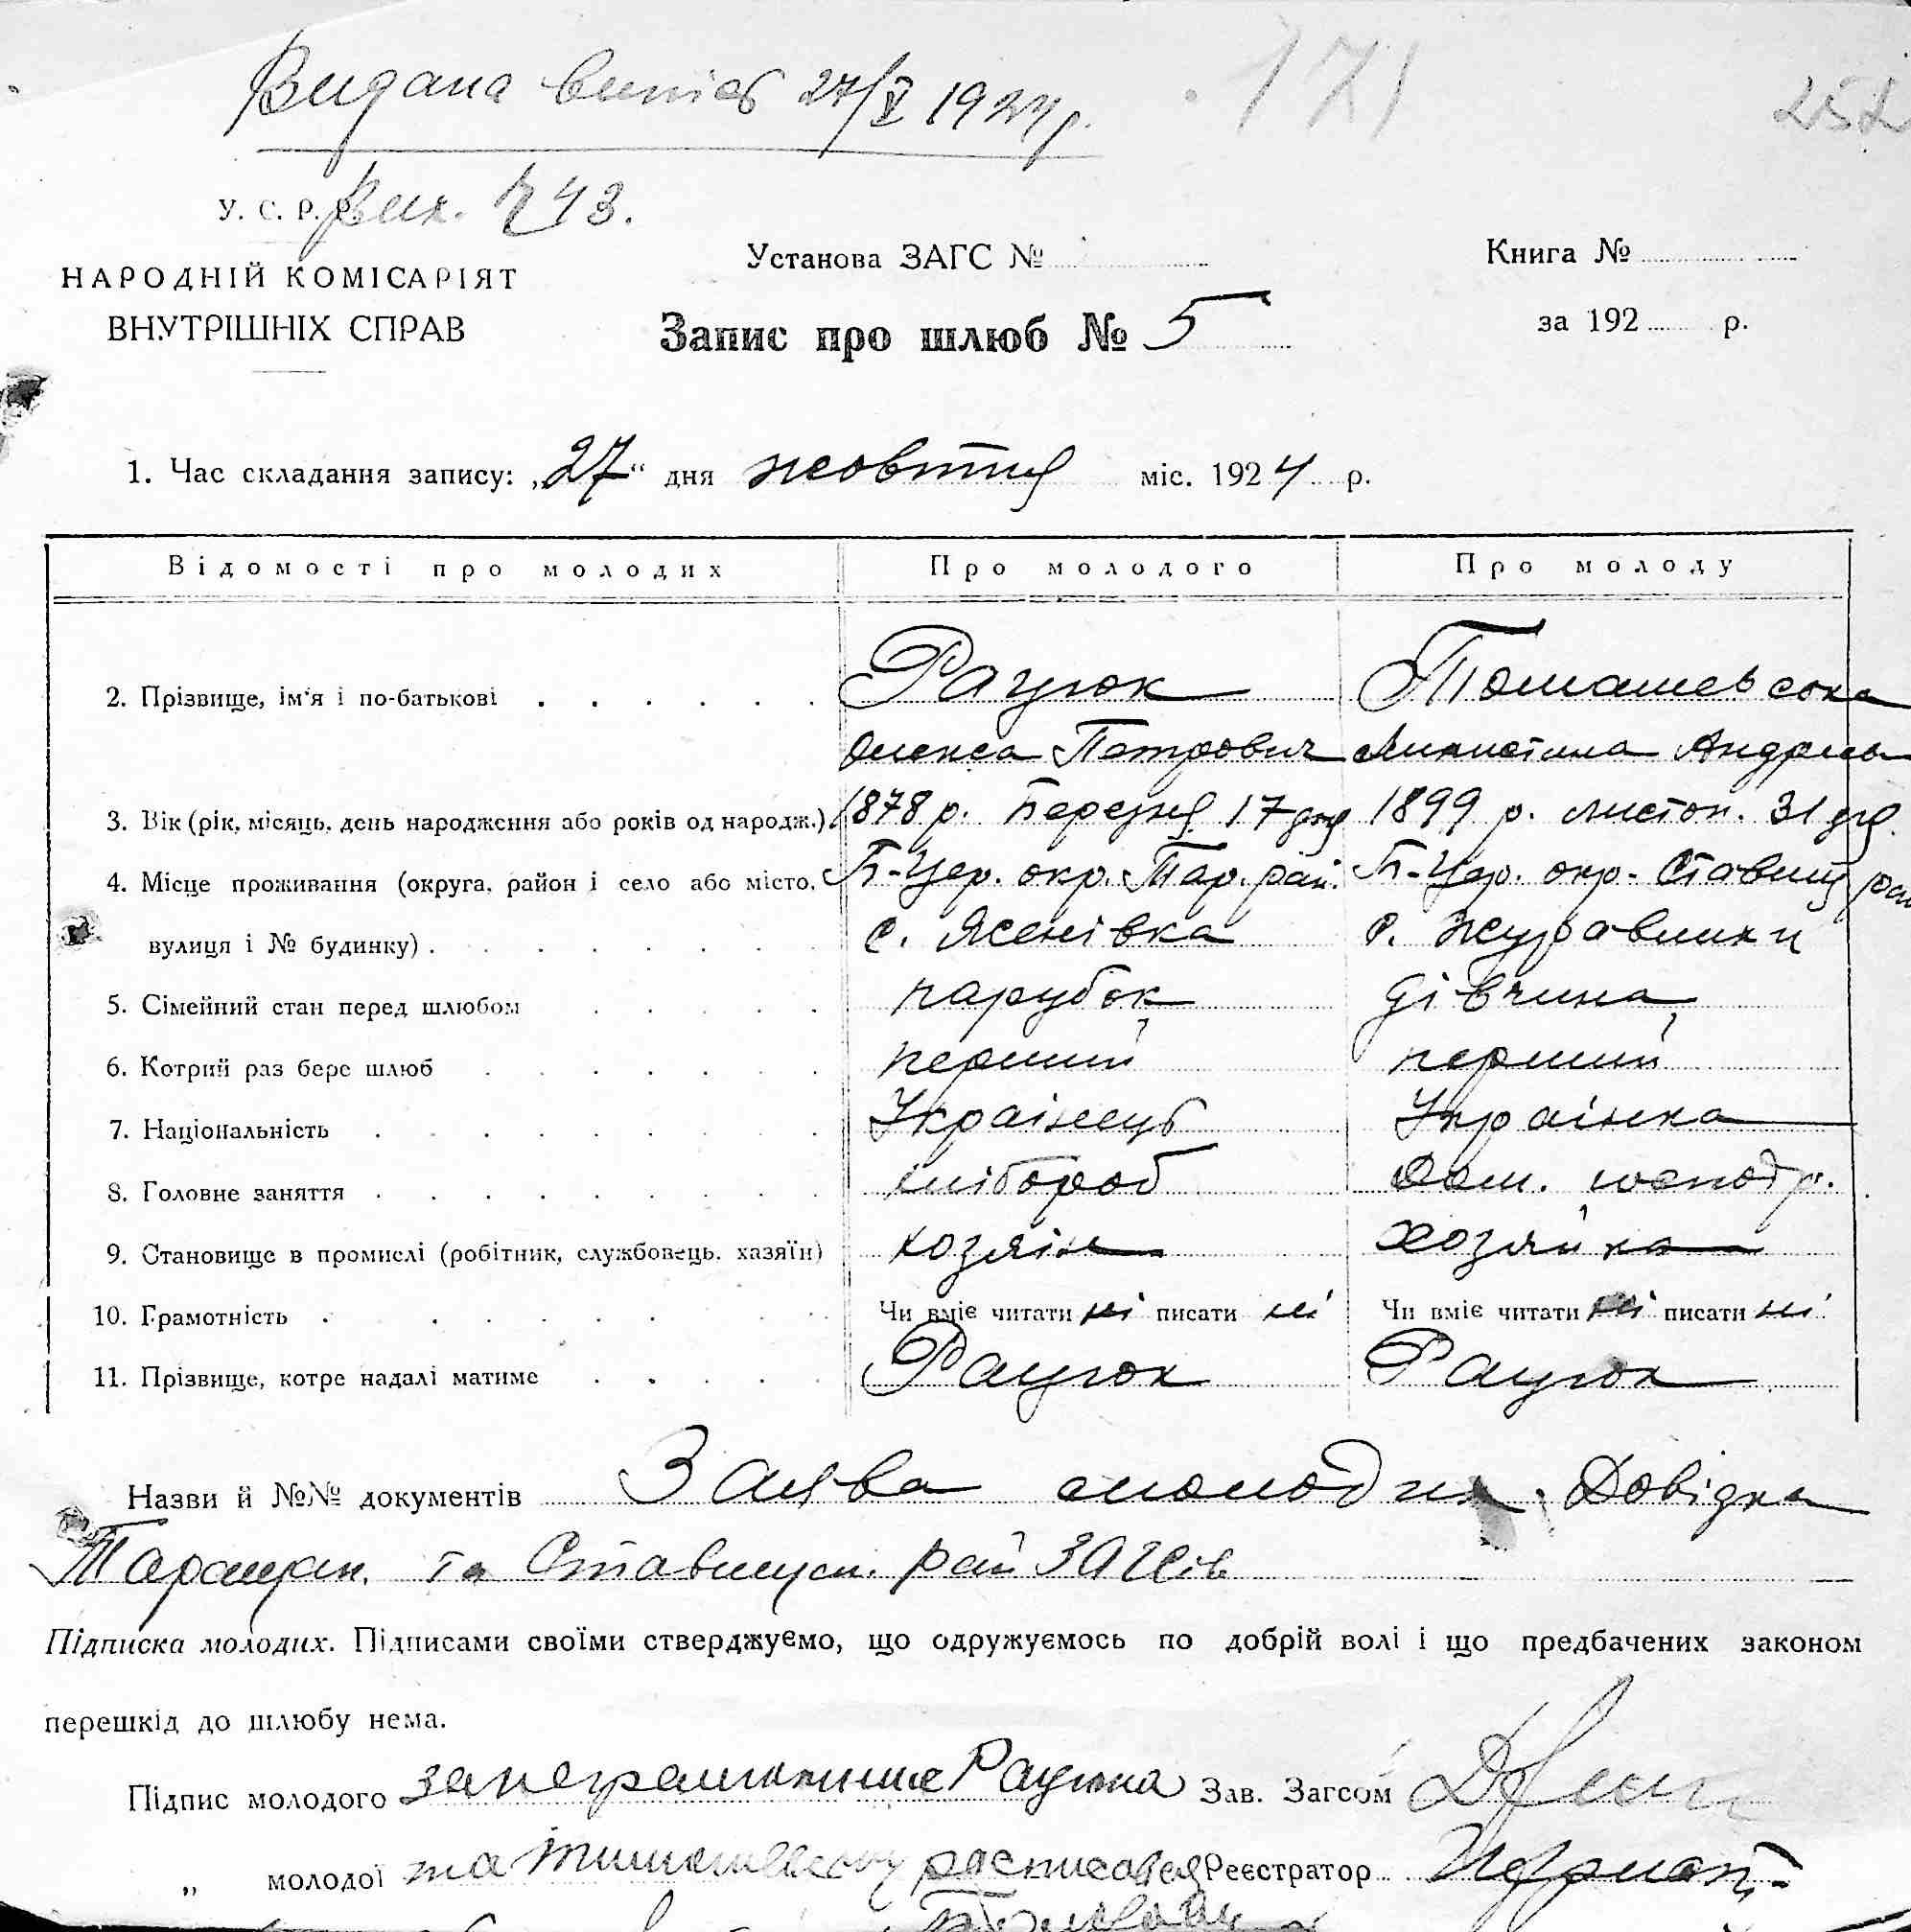 Видана витяг 27/X 1924 р.
171
252
вих. 743.
У. С. Р. Р.
НАРОДНІЙ КОМІСАРІЯТ
ВНУТРІШНІХ СПРАВ
Установа ЗАГС №
Книга №
Запис про шлюб № 5
за 192 р.
1. Час складання запису: „27“ дня жовтня міс. 1924 р.
Відомості про молодих Про молодого Про молоду
2. Прізвище, ім'я і по-батькові Рацюк Томашевська
Олекса Петрович Андріев
3. Вік (рік, місяць, день народження або років од народж.) 1878 р. Березня 17 дня 1899 р. листоп. 31 дня.
4. Місце проживання (округа, район і село або місто, Б-Цер. окр. Тар. рай. Б-Цер. окр. Ставищ рай
вулиця і № будинку) с. Ясенівка с. Журавлики
5. Сімейний стан перед шлюбом парубок дівчина
6. Котрий раз бере шлюб перший перший
7. Національність Українець Українка
8. Головне заняття хлібороб Дом. господ р.
9. Становище в промислі (робітник, службовець, хазяїн) хозяїн хозяйка
10. Грамотність Чи вміє читати ні писати ні Чи вміє читати ні писати ні
11. Прізвище, котре надалі матиме Рацюк Рацюк
Назви й №№ документів Заява молодих. Довідка
Таращан. та Ставищан. рай ЗАГСів
Підписка молодих. Підписами своїми стверджуємо, що одружуємось по добрій волі і що предбачених законом
перешкід до шлюбу нема.
Підпис молодого за неграмотних Рацюка Зав. Загсом
„ молодої та Томашевську расписався Реєстратор